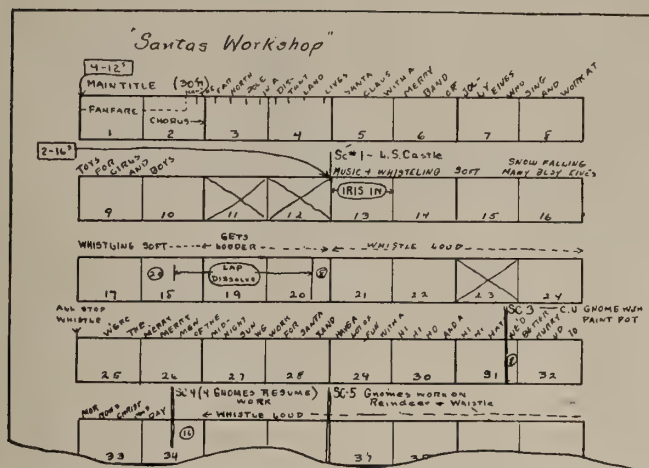 "Santas Workshop"
4-12s
MAIN TITLE (30 ft) FAR NORTH POLE IN A DIS- TANT LAND LIVES SANTA CLAUS WITH A MERRY BAND OF JOL- LY ELVES WHO SING AND WORK AT
FANFARE
CHORUS
1 2 3 4 5 6 7 8
2-16s
TOYS FOR GIRLS AND BOYS
Sc #1 - L.S. Castle
MUSIC + WHISTELING SOFT
SNOW FALLING
IRIS IN
9 10 11 12 13 14 15 16
WHISTLING SOFT GETS LOUDER WHISTLE LOUD
LAP DISSOLVE
17 18 19 20 21 22 23 24
ALL STOP WHISTLE
WERE THE MERRY MERRY MEN OF THE MID- NIGHT SUN WE WORK FOR SANTA AND HAVE A LOT OF FUN WITH A HI HI HO AND A HI HI HAY WE'D BETTER HURRY UP TO
SC 3 - C.U GNOME WITH PAINT POT
8
25 26 27 28 29 30 31 32
MOR ROWS CHRIST MAS DAY
SC 4 (4 GNOMES RESUME) WORK
SC-5 Gnomes work on Reindeer + Whistle
WHISTLE LOUD
16
33 34 37